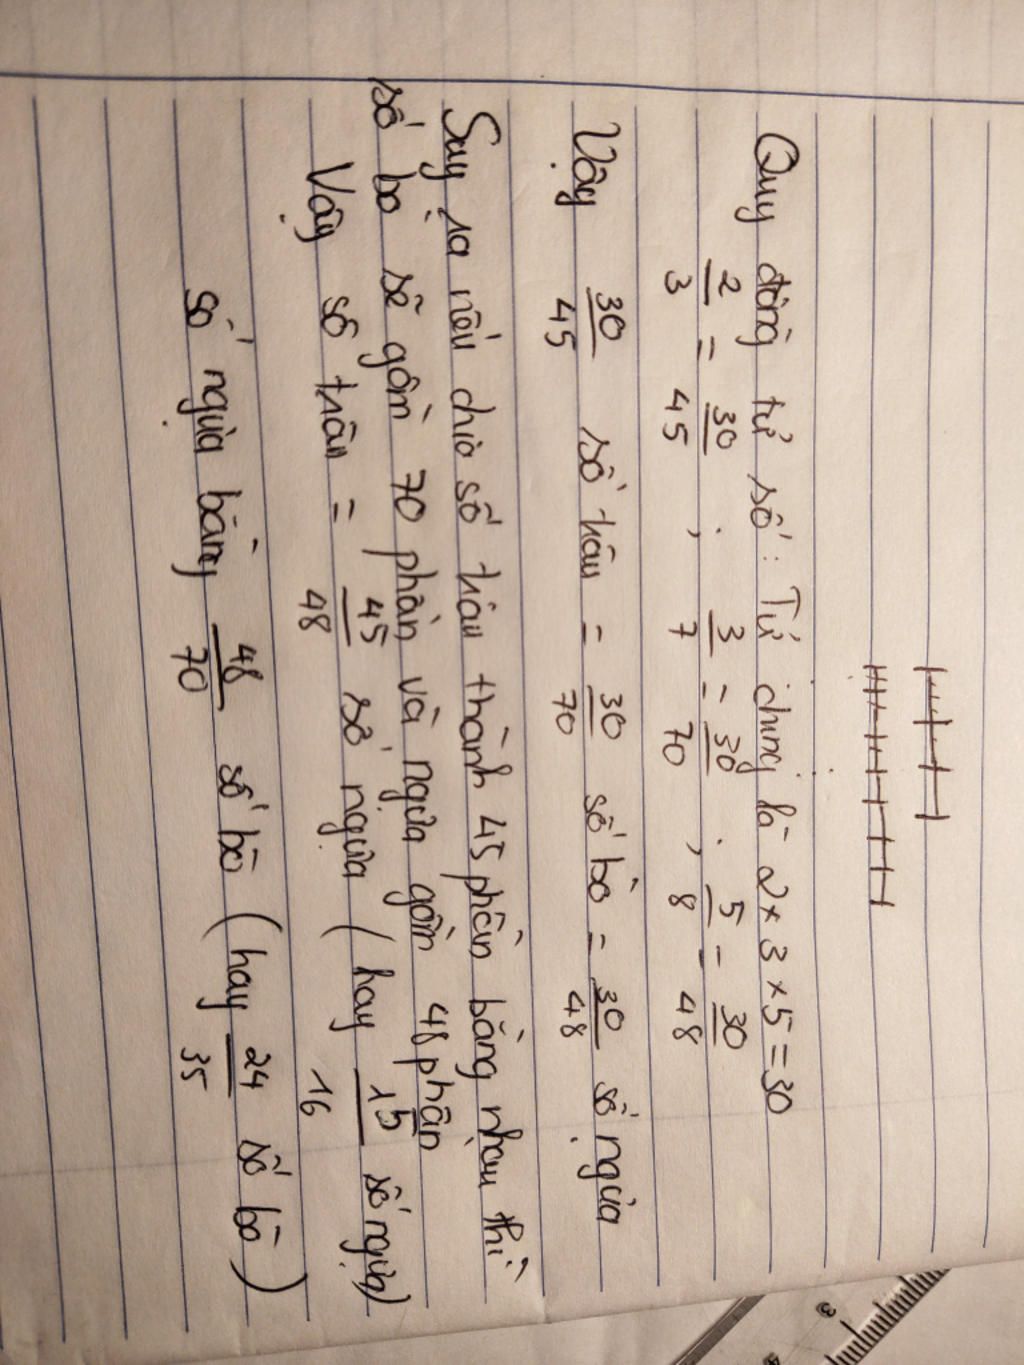 Quy đồng tử số: Tử chung là 2 × 3 × 5 = 30
2/3 = 30/45 ; 3/7 = 30/70 ; 5/8 = 30/48
Vậy 30/45 số trâu = 30/70 số bò = 30/48 số ngựa
Suy ra nếu chia số trâu thành 45 phần bằng nhau thì
số bò sẽ gồm 70 phần và ngựa gồm 48 phần
Vậy số trâu = 45/48 số ngựa (hay 15/16 số ngựa)
Số ngựa bằng 48/70 số bò (hay 24/35 số bò)
3